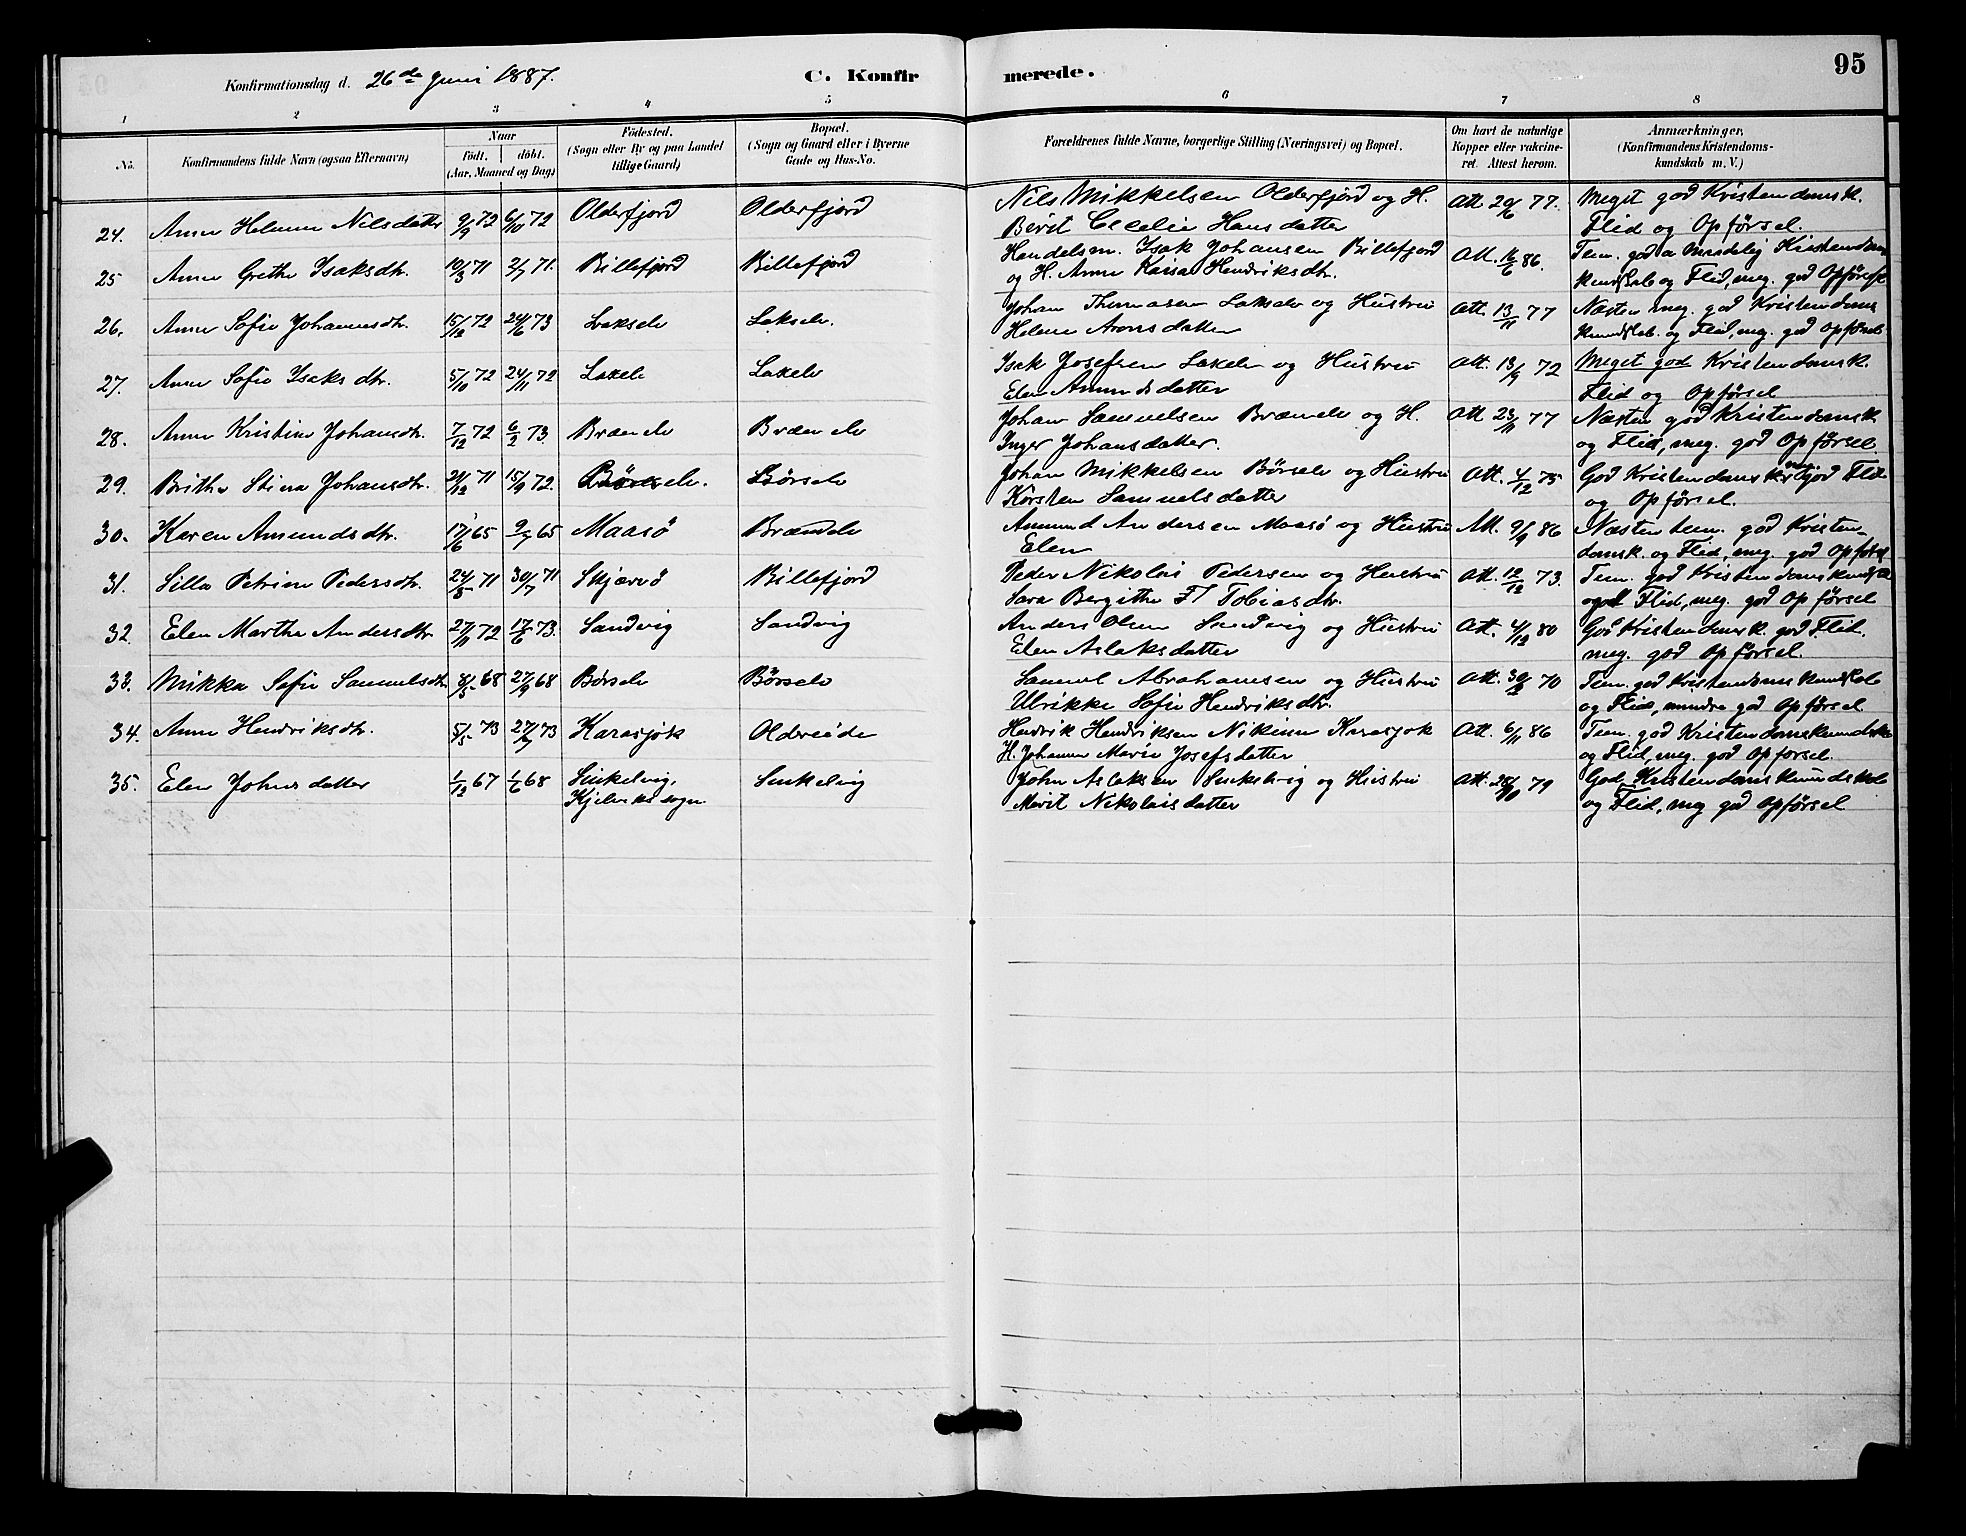 95
C. Konfirmerede.
Konfirmationsdag d. 26de Juni 1887.
1 2 3 4 5 6 7 8
No.
Konfirmandens fulde Navn (ogsaa Efternavn)
Naar
født. døbt.
(Aar, Maaned og Dag)
Födested.
(Sogn eller By og paa Landet
tillige Gaard)
Bopæl.
(Sogn og Gaard eller i Byerne
Gade og Hus-No.
Forældrenes fulde Navne, borgerlige Stilling (Næringsvei) og Bopæl.
Om havt de naturlige
Kopper eller vakcineret.
Attest herom.
Anmærkninger,
(Konfirmandens Kristendomskundskab
m. V.)
24. Anne Helene Nilsdatter 9/9 72 6/10 72 Olderfjord Olderfjord Nils Mikkelsen Olderfjord og H. Att. 77. Meget god Kristendomsk.
Berit Cecelie Hansdatter Flid og Opførsel.
25 Anne Grethe Isaksdtr. 71 2/7 71. Billefjord Billefjord Handelsm. Isak Johansen Billefjord Att. 16/6 86. Tem. god Kristendoms
og H. Anne Kaisa Hendriksdtr. kundskab og Flid, meg. god Opførsel
26. Anne Sofie Johannesdtr. 15/12 72 24/6 73 Lakselv Lakselv. Johan Thomasen Lakselv og Hustru Att. 13/11 77 Næsten meg. god Kristendoms
Helene Aronsdatter kundskab. og Flid, meg. god Opførsel
27. Anne Sofie Isaksdtr. 5/10 72 24/11 72 Lakselv Lakselv Isak Josefsen Lakselv og Hustru Att. 13/9 72 Meget god Kristendomsk.
Elen Amundsdatter Flid og Opførsel
28. Anne Kristine Johansdtr. 7/12 72 6/2 73. Brænelv Brænelv Johan Samuelsen Brænelv og H. Att. 23/11 77 Næsten god Kristendomsk
Inger Johansdatter. og Flid, meg. god Opførsel
29. Brithe Stina Johansdtr. 71 15/9 72. Börselv. Börselv Johan Mikkelsen Börselv og Hustru Att. 4/12 75 God Kristendomsk. god Flid
Kirsten Samuelsdatter og Opførsel.
30. Karen Amundsdtr. 17/6 65 9/7 65 Maasö Brændelv Amund Andersen Maasö og Hustru Att. 9/9 86 Næsten tem. god Kristen-
Elen domsk. og Flid, meg. god Opførsel
31. Silla Petrine Pedersdtr. 24/5 71 30/7 71 Skjærvö Billefjord Peder Nikolai Pedersen og Hustru Att. 12/12 73. Tem. god Kristendomskundsk
Sara Bergithe Tobiasdtr. og Flid, meg. god Opførsel
32. Elen Marthe Andersdtr 27/11 72 17/6 73. Sandvig Sandvig Anders Olsen Sandvig og Hustru Att. 4/12 80 God Kristendomsk. god Flid.
Elen Aslaksdatter meg. god Opførsel.
33. Mikka Sofie Samuelsdtr. 8/5 68 27/9 68 Børselv Børselv Samuel Abrahamsen og Hustru Att. 70 Tem. god Kristendomskundskab
Ulrikke Sofie Hendriksdtr. og Flid, mindre god Opførsel.
34. Anne Hendriksdtr. 5/5 73 27/7 73 Karasjok Oldereide Hendrik Hendriksen Nikinen Karasjok Att. 6/11 86 Tem. god Kristendomskundsk
H. Johanne Marie Josefsdatter og Flid, meg. god Opførsel.
35. Elen Johnsdatter 1/12 67 1/6 68 Smkelvig, Smkelvig John Aslaksen Smkelvig og Hustru Att. 79 God Kristendomskundskab
Kjelviks sogn Marit Nikolaisdatter og Flid, meg god Opførsel